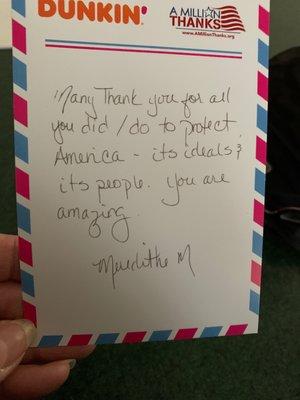 DUNKIN'
A MILLION
THANKS
www.AMillionThanks.org
Many Thank you for all
you did / do to protect
America - its ideals &
its people. You are
amazing.
Meredithe M